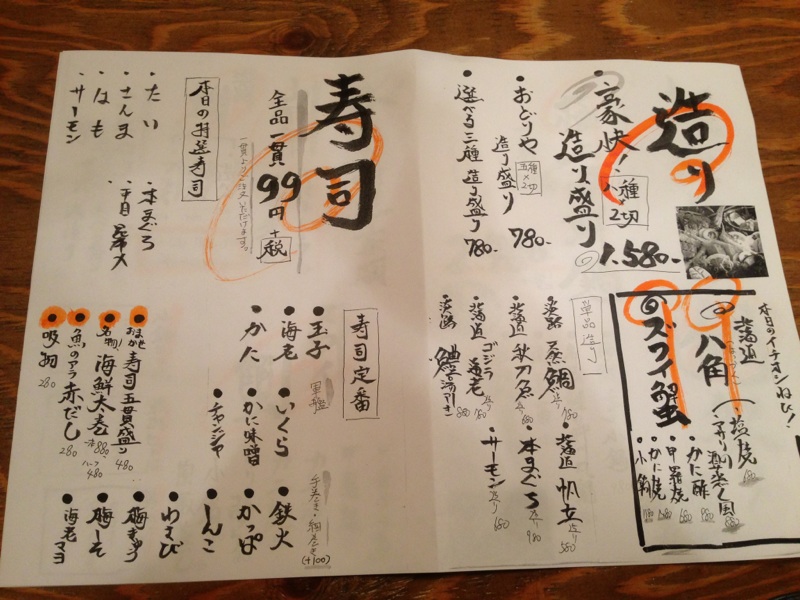 造り
豪快！
八種×2切
造り盛り
1.580-
おどりや
造り盛り
五種×2切
780-
選べる三種 造り盛り
780-
本日のイチオシねび！
北海道
八角
塩焼
ズワイ蟹
かに酢
甲羅焼
かに焼
小鍋
単品造り
淡路 天然鯛 造り 780
北海道 秋刀魚 造り 680
北海道 ゴジラ海老 造り 880
淡路 鱧
北海道 帆立 造り 580
本まぐろ 造り 980
サーモン 造り 680
寿司
全品一貫
99円＋税
一貫よりご注文いただけます。
本日の特選寿司
たい
さんま
はも
サーモン
本まぐろ
寿司定番
玉子
海老
かに
軍艦
いくら
かに味噌
チャンジャ
手巻き・細巻き(+100)
鉄火
かっぱ
しんこ
わさび
梅きゅう
梅しそ
海老マヨ
おまかせ 寿司五貫盛り 480
名物！ 海鮮太巻 一本 880 ハーフ 480
魚のアラ 赤だし 280
吸物 280